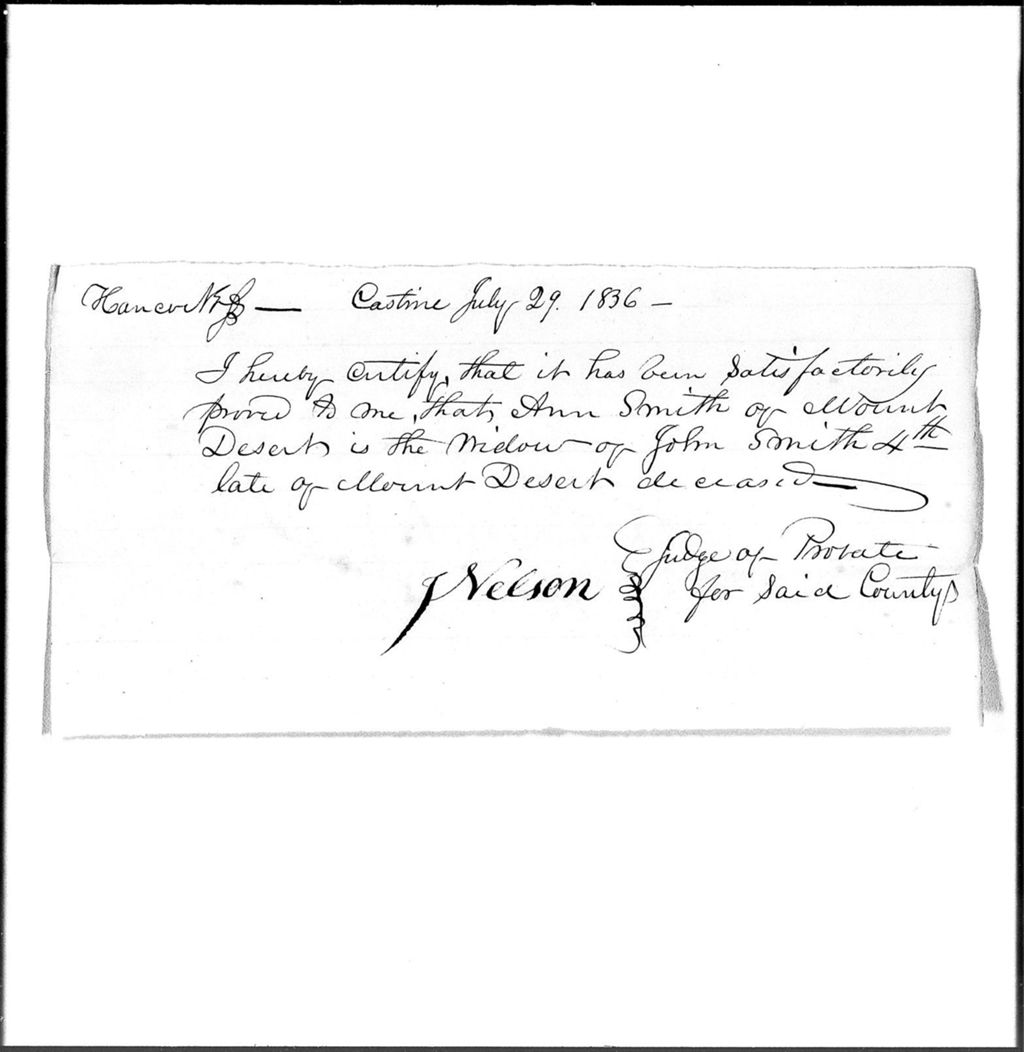 Hancock ss — Castine July 29. 1836 —
I hereby certify, that it has been satisfactorily
proved to me, that, Ann Smith of Mount
Desert, is the Widow of John Smith 4th
late of Mount Desert deceased —
Judge of Probate
J Nelson for said County